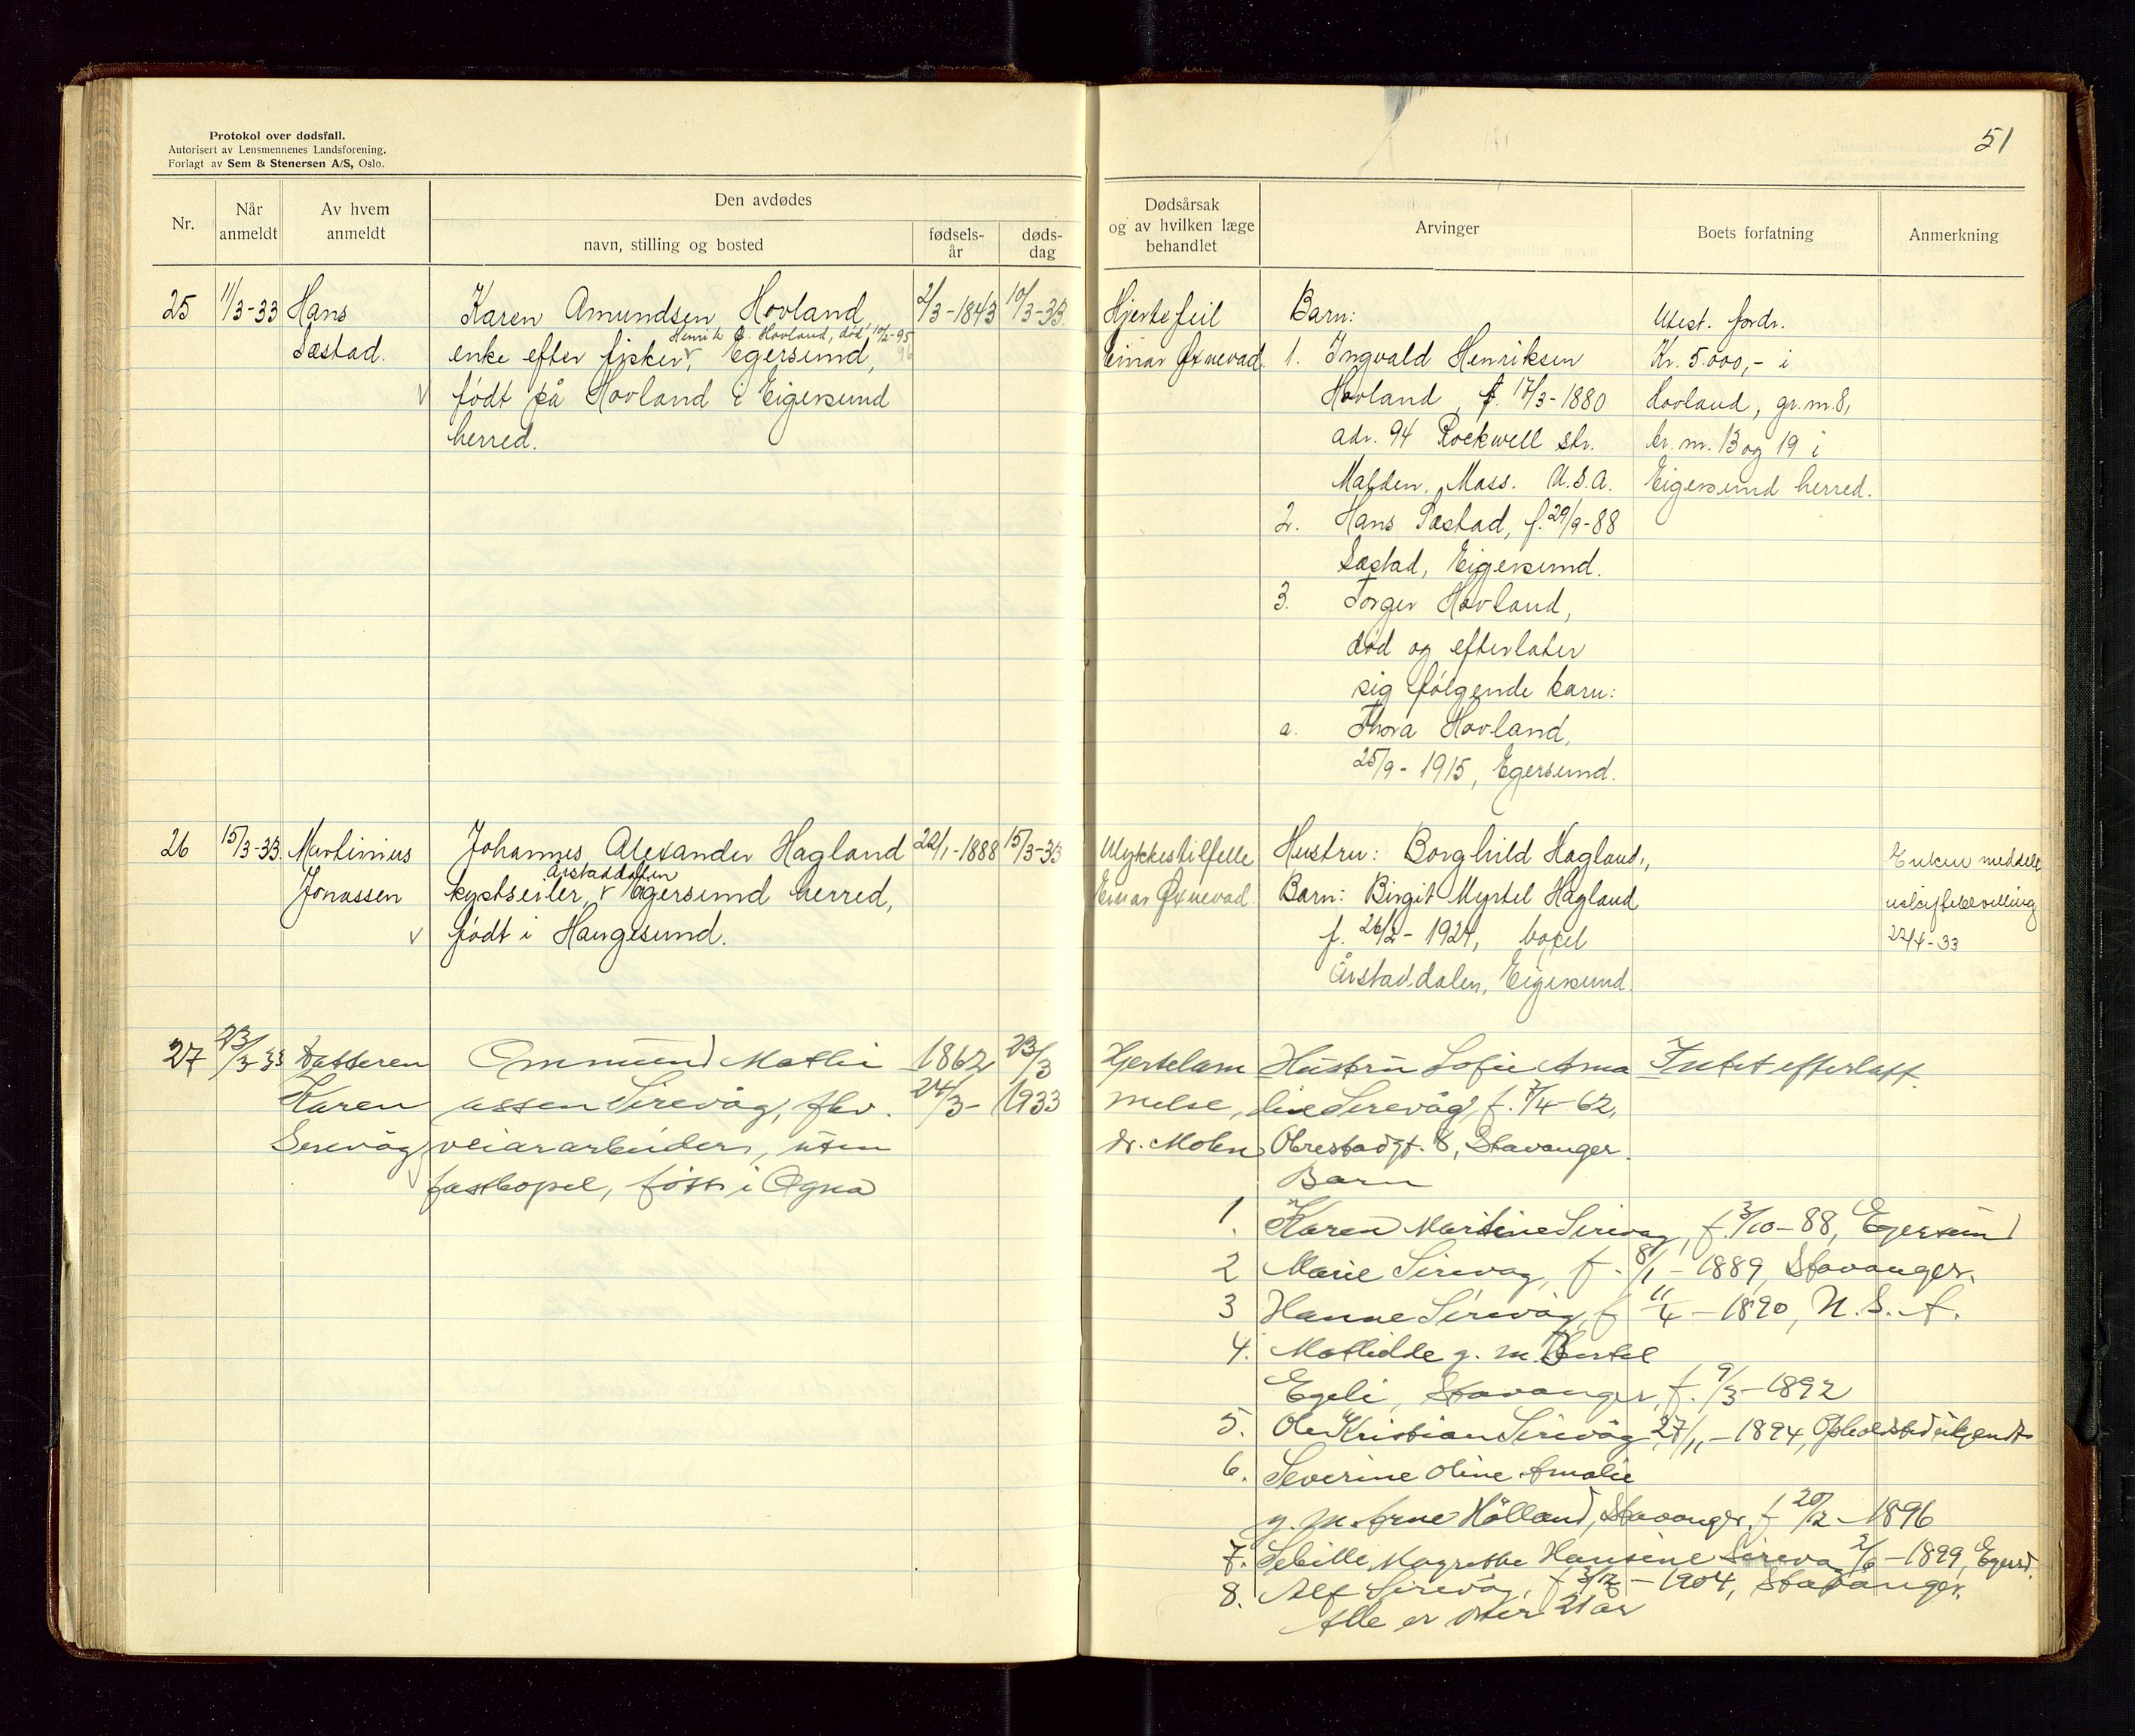 Protokol over dødsfall.
Autorisert av Lensmennenes Landsforening.
Forlagt av Sem & Stenersen A/S, Oslo.
51
Nr.
Når anmeldt
Av hvem anmeldt
Den avdødes
navn, stilling og bosted
fødsels-år
døds-dag
Dødsårsak og av hvilken læge behandlet
Arvinger
Boets forfatning
Anmerkning
25
11/3-33
Hans
Sæstad.
Karen Amundsen Hovland,
Henrik O. Hovland, død 10/2-95
96
enke efter fisker, Egersund,
født på Hovland i Eigersund
herred.
2/3-1843
10/3-33.
Hjertefeil
Einar Øxnevad.
Barn:
1. Ingvald Henriksen
Hovland, f. 17/3-1880
adr. 94 Rockwell str.
Malden, Mass. U.S.A.
2. Hans Sæstad, f. 29/9-88
Sæstad, Eigersund.
3. Torger Hovland,
død og efterlater
sig følgende barn:
a. Thora Hovland,
25/9-1915, Egersund.
Utest. fordr.
Kr. 5.000,- i
Hovland, gr.nr. 8,
br.nr. 13 og 19 i
Eigersund herred.
26
15/3-33.
Martinius
Jonassen
Johannes Alexander Hagland
Årstaddalen
kystseiler, Egersund herred,
født i Haugesund.
22/1-1888
15/3-33
Ulykkestilfelle
Einar Øxnevad.
Hustru: Borghild Hagland,
Barn: Birgit Myrtel Hagland
f. 26/2-1924, bopel
Årstaddalen, Eigersund.
Enken meddelt
uskiftebevilling
22/4-33
27
23/3-33
Datteren
Karen
Sirevåg
Ommund Mathi
assen Sirevåg, fhv.
veiararbeider, uten
fast bopel, født i Ogna
1862
24/3-
23/3
1933
Hjertelam
melse,
dr. Mohn
Hustru Sofie Ama
lie Sirevåg, f. 7/4-62,
Obrestadgt. 8, Stavanger.
Barn
Intet efterlatt.
1. Karen Martine Sirevåg, f. 3/10-88, Egersund
2 Marie Sirevåg, f. 8/1-1889, Stavanger.
3 Hanne Sirevåg, f 11/4-1890, U.S.A.
4. Mathilde g. m. Bertel
Egeli, Stavanger, f. 9/3-1892
5. Ole Kristian Sirevåg 27/11-1894, Opholdsted ukjendt
6. Severine Oline Amalie
g. m. Arne Hålland, Stavanger, f 20/12-1896
7. Sebille Magrethe Hansine Sireva 2/6-1899, Egersd.
8. Alf Sirevåg, f 3/12-1904, Stavanger.
Alle er over 21 år